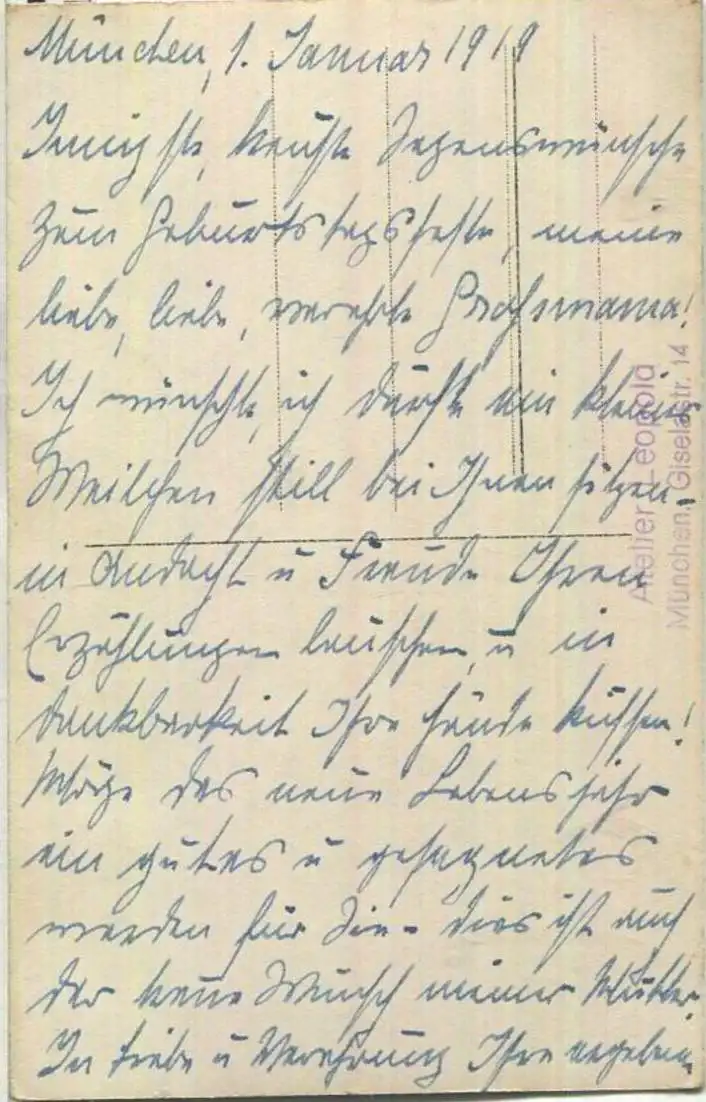 München, 1. Januar 1919
Innigste, treuste Segenswünsche
zum Geburtstagsfeste, meine
liebe, liebe, verehrte Großmama!
Ich wünschte, ich dürfte ein kleines
Weilchen still bei Ihnen sitzen –
in Andacht u Freude Ihren
Erzählungen lauschen, u in
Dankbarkeit Ihre Hände küssen!
Möge das neue Lebensjahr
ein gutes u gesegnetes
werden für Sie – dies ist auch
der treue Wunsch meiner Mutter.
In Liebe u Verehrung Ihre ergebene
Atelier Leopold
München, Giselastr. 14